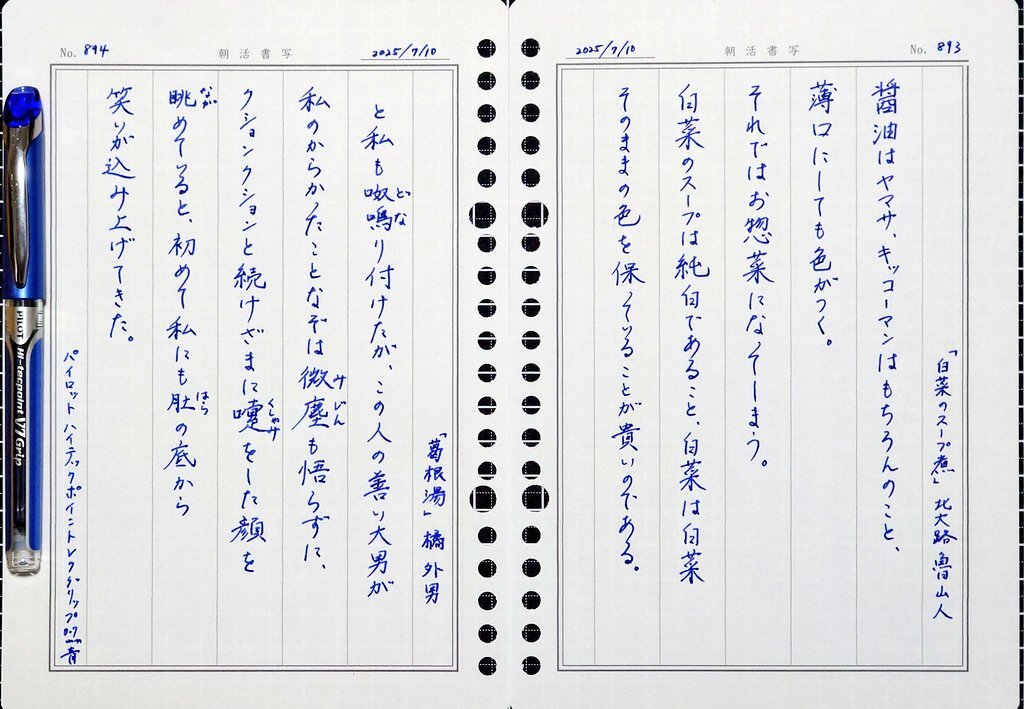 No. 893
朝活書写
2025/7/10
「白菜のスープ煮」 北大路魯山人
醤油はヤマサ、キッコーマンはもちろんのこと、
薄口にしても色がつく。
それではお惣菜になってしまう。
白菜のスープは純白であること、白菜は白菜
そのままの色を保っていることが貴いのである。
No. 894
朝活書写
2025/7/10
「葛根湯」 橘外男
と私も呶鳴り付けたが、この人の善い大男が
どな
私のからかったことなぞは微塵も悟らずに、
みじん
クションクションと続けざまに嚔をした顔を
くしゃみ
眺めていると、初めて私にも肚の底から
なが
はら
笑いが込み上げてきた。
パイロット ハイテックポイントVグリップ0.7mm青
PILOT Hi-tecpoint V7 Grip